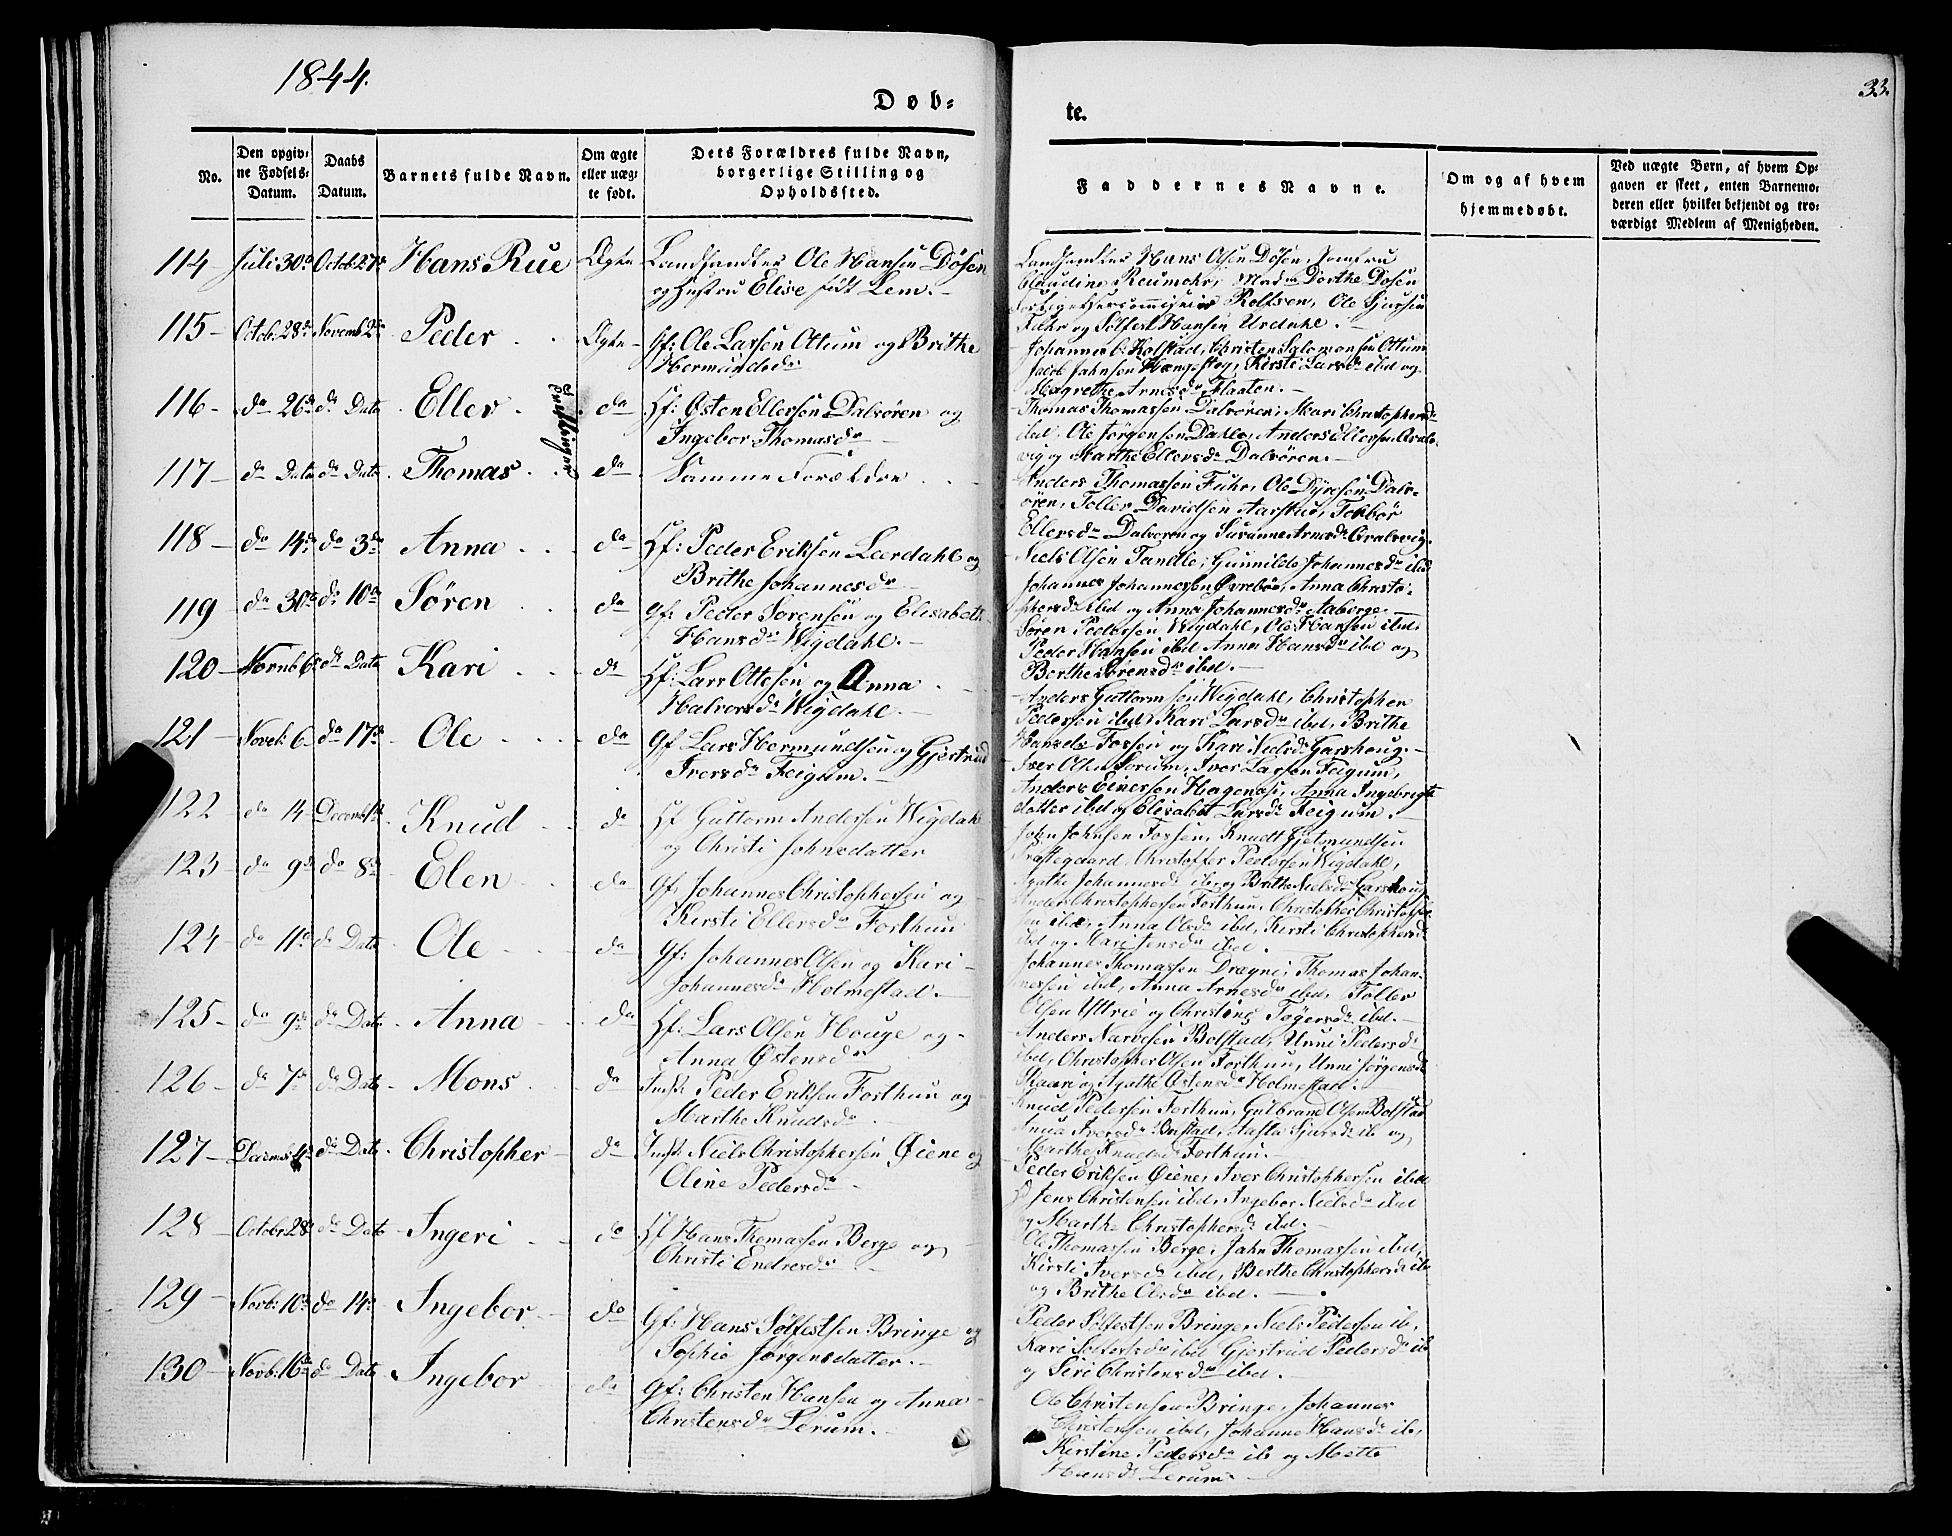 1844.
Døb-
te.
33.
No.
Den opgiv-
ne Fødsels-
Datum.
Daabs
Datum.
Barnets fulde Navn.
Om ægte
eller uæg-
te født.
Dets Forældres fulde Navn,
borgerlige Stilling og
Opholdssted.
Faddernes Navne.
Om og af hvem
hjemmedøbt.
Ved uægte Børn, af hvem Op-
gaven er skeet, enten Barnemo-
deren eller hvilket bekjendt og tro-
værdigt Medlem af Menigheden.
114 Juli 30 Octob: 27 Hans Rue Ægte Landhandler Ole Hansen Døsen
og Hustru Elise født Lem.
Landhandler Hans Olsen Døsen, Jomfru
Claudine Reumohr, Mad Dorthe Dosen
Rolfsen, Ole Sjursen
Fuhr og Sølfest Hansen Urdahl.
115 Octob: 28 Novemb: 2 Peder Ægte Gf: Ole Larsen Ottum og Brithe
Hermundsd
Johannes Kolstad, Christen Salomonsen Ottum
Jacob Jahnsen Hængsteg, Kirsti Larsd ibd og
Magrethe Arnesd Flaaten.
116 d 26 d Dato Eller Tvillinger d Hf: Østen Ellersen Dalsøren og
Ingebor Thomasd
Thomas Thomassen Dalsøren, Mari Christophersd
ibd, Ole Jørgensen Dahle, Anders Ellersen Qvale-
vig og Marthe Ellersd Dalsøren.
117 d Dato d Dato Thomas d Samme Forældre
Anders Thomassen Fuhr, Ole Dyresen Dals-
øren, Toller Davidsen Aarstad, Tokbør
Ellersd Dalsøren og Susanne Arnesd Qvalevig.
118 d 14 d 3 Anna d Hf: Peder Eriksen Lærdahl og
Brithe Johannesd
Niels Olsen Tandle, Gunnilde Johannesd ibd
Johannes Johannessen Øvrebøe, Anna Christo-
phersd ibd og Anna Johannesd Aaberge
119 d 30 d 10 Søren d Gf: Peder Sorensen og Elisabeth
Hansd Wigdahl.
Søren Pedersen Wigdahl, Ole Hansen ibd,
Peder Hansen ibd Anna Hansd ibd og
Berthe Sørensd ibd.
120 Novmb 6 d Dato Kari d Hf: Lars Ottesen og Anna
Halvorsd Wigdahl.
Anders Guttormsen Wigdahl, Christopher
Pedersen ibd, Kari Larsd ibd, Brithe
Hansd Fossen og Kari Nielsd Garshoug.
121 Noveb: 6 d 17 Ole d Gf Lars Hermundsen og Gjertrud
Iversd Feigum.
Iver Olsen Sorum, Iver Larsen Feigum,
Anders Einersen Hagenæs, Anna Ingebrigts
datter ibd og Elisabet Larsd Feigum.
122 d 14 Decemb 1 Knud d Hf Guttorm Andersen Wigdahl
og Christi Johnsdatter
John Johnsen Fossen, Knudt Gjetmundsen
Præstegaard, Christoffer Pedersen Wigdahl,
Agathe Johannesd ibd og Brithe Nielsd Garshoug
123 d 9 d 8 Elen d Gf: Johannes Christophersen og
Kirsti Ellersd Forthun
Anders Christophersen Forthun, Christopher Christophe-
sen ibd, Anna Olsd ibd, Kirsti Christophersd
ibd og Mari Jensd ibd.
124 d 11 d Dato Ole d Gf: Johannes Olsen og Kari
Johannesd Holmestad.
Johannes Thomassen Drægni, Thomas Johan-
nessen ibd, Anna Arnesd ibd, Toller
Olsen Yttrie og Christine Tøgersd ibd.
125 d 9 d Dato Anna d Hf: Lars Olsen Houge og
Anna Østensd
Anders Narvesen Bolstad, Unni Pedersd
ibd, Christopher Olsen Forthun, Unni Jørgensd
Skaari og Agathe Østensd Holmestad.
126 d 7 d Dato Mons d Inds: Peder Eriksen Forthun og
Marthe Knudsd
Knud Pedersen Forthun, Gulbrand Olsen Bolstad
Anna Iversd Bolstad, Sjursd ib og
Marthe Knudsd Forthun.
127 Decmb 4 d Dato Christopher d Inds: Niels Christophersen Øiene og
Oline Pedersd
Peder Eriksen Øiene, Iver Christophersen ibd
Jens Christensen ibd, Ingebor Nielsd ibd
og Marthe Christophersd ibd.
128 Octobr: 28 d Dato Ingeri d Hf Hans Thomassen Berge og
Christi Endresd
Ole Thomassen Berge, Jahn Thomassen ibd,
Kirsti Iversd ibd, Berthe Christophersd ib
og Brithe Olsd ibd.
129 Novb: 10 d 14 Ingebor d Gf: Hans Sølfestsen Bringe og
Sophie Jørgensdatter.
Peder Sølfestsen Bringe, Niels Pedersen ib,
Kari Solfestsd ibd Gjertrud Pedersd ib
og Siri Christensd ibd.
130 Novb: 16 d Dato Ingebor d Gf: Christen Hansen og Anna
Christensd Lerum.
Ole Christensen Bringe, Johannes
Christensen ibd, Johanne Hansd ib,
Kirstine Pedersd ib og Mette
Hansd Lerum.